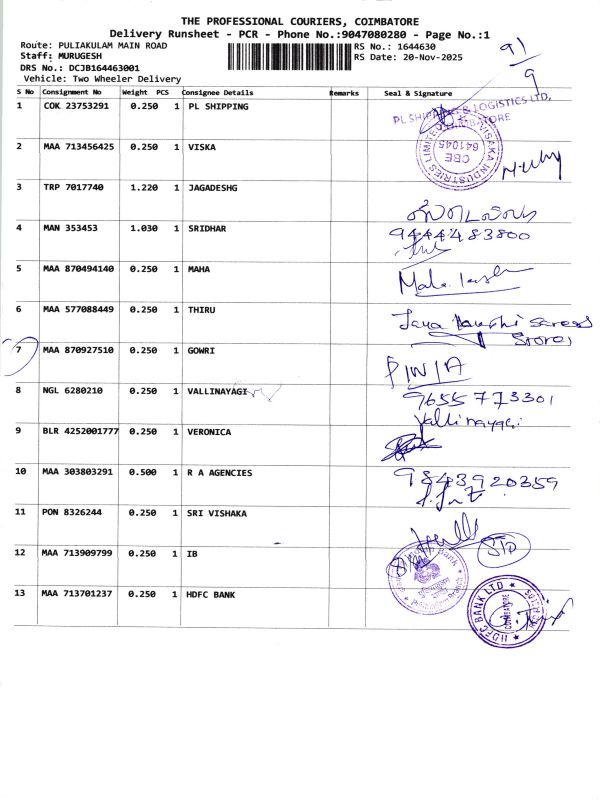 THE PROFESSIONAL COURIERS, COIMBATORE
Delivery Runsheet - PCR - Phone No.:9047080280 - Page No.:1
Route: PULIAKULAM MAIN ROAD RS No.: 1644630
Staff: MURUGESH RS Date: 20-Nov-2025
DRS No.: DCJB164463001
Vehicle: Two Wheeler Delivery
91/9
S No Consignment No Weight PCS Consignee Details Remarks Seal & Signature
1 COK 23753291 0.250 1 PL SHIPPING PL SHIPPING & LOGISTICS LTD,
COIMBATORE
2 MAA 713456425 0.250 1 VISKA VISAKA INDUSTRIES LIMITED CBE 641045
3 TRP 7017740 1.220 1 JAGADESHG
4 MAN 353453 1.030 1 SRIDHAR 9444483800
5 MAA 870494140 0.250 1 MAHA
6 MAA 577088449 0.250 1 THIRU Stores
7 MAA 870927510 0.250 1 GOWRI
8 NGL 6280210 0.250 1 VALLINAYAGI 9655773301
Vallinayagi
9 BLR 4252001777 0.250 1 VERONICA
10 MAA 303803291 0.500 1 R A AGENCIES 9843920359
11 PON 8326244 0.250 1 SRI VISHAKA
12 MAA 713909799 0.250 1 IB Bank
13 MAA 713701237 0.250 1 HDFC BANK HDFC BANK LTD COIMBATORE